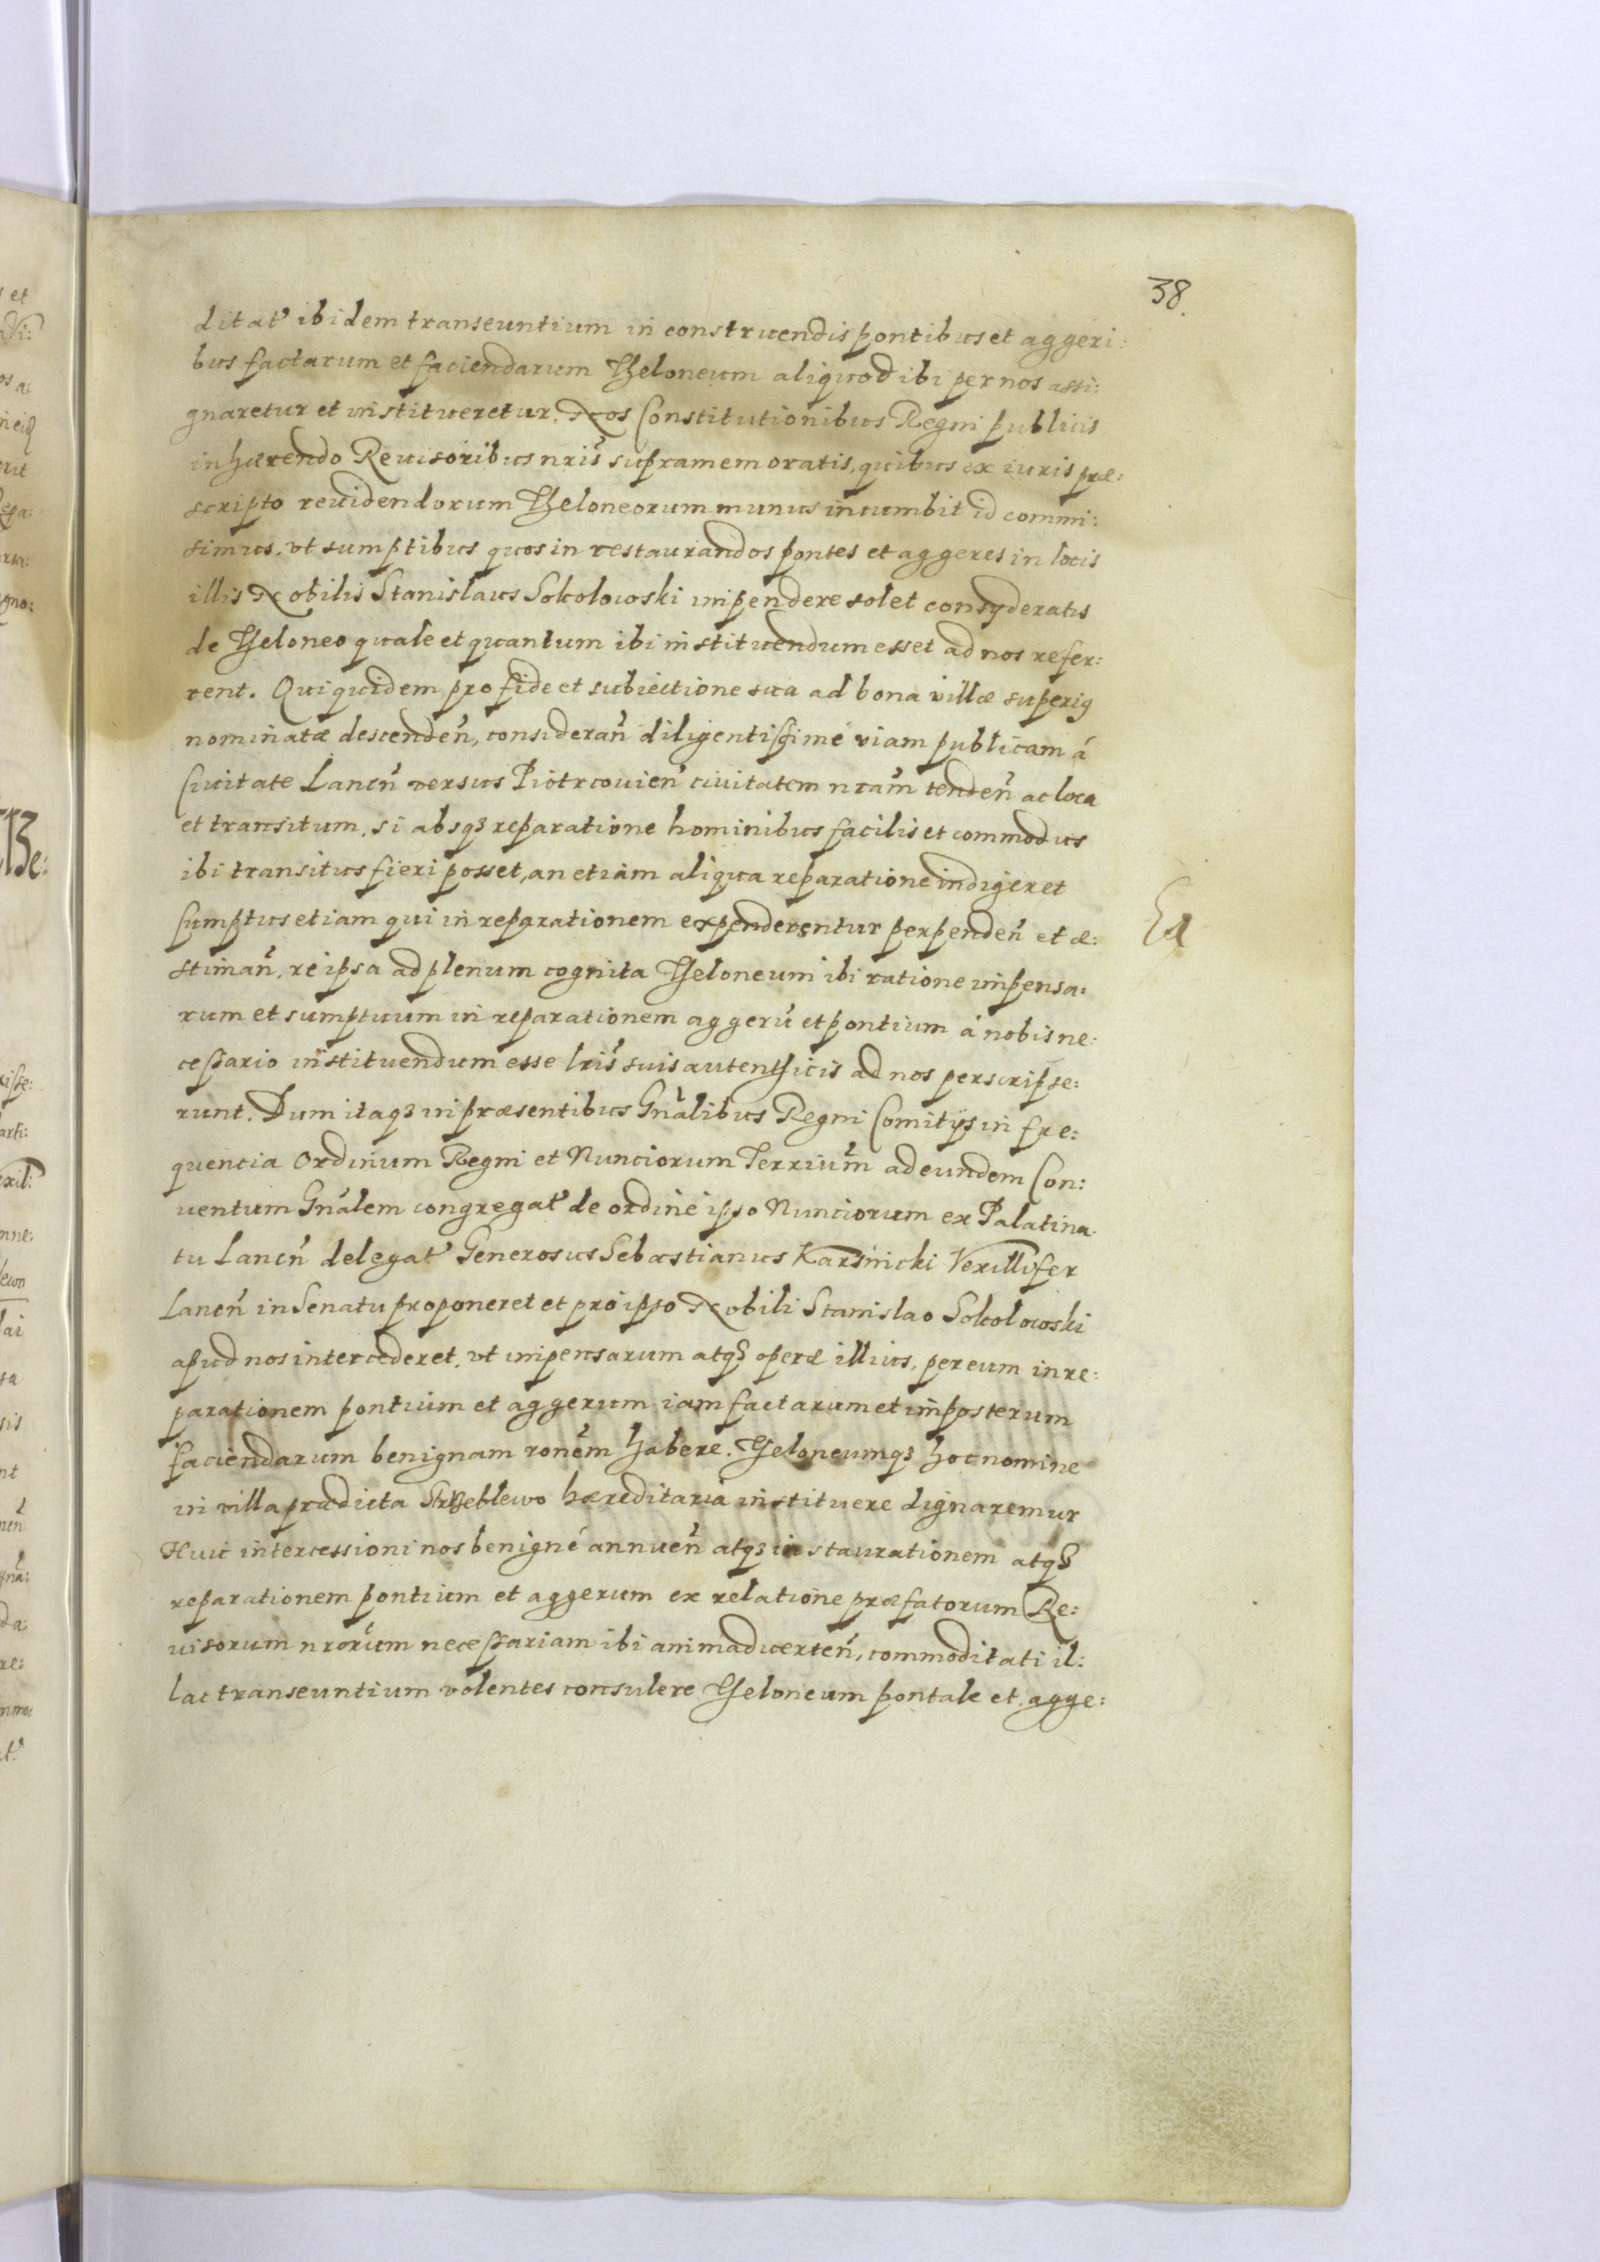 38.
ditat' ibidem transeuntium in construendis pontibus et aggeri:
bus factarum et faciendarum Theloneum aliquod ibi per nos assi:
gnaretur et institueretur. Nos Constitutionibus Regni publicis
inhærendo Reuisoribus nris̃ supramemoratis, quibus ex iuris præ:
scripto reuidendorum Theloneorum munus incumbit id commi:
simus, vt sumptibus quos in restaurandos pontes et aggeres in locis
illis Nobilis Stanislaus Sokolowski impendere solet consyderatis
de Theloneo quale et quantum ibi instituendum esset ad nos refer:
rent. Qui quidem pro fide et subiectione sua ad bona villæ superiꝰ
nominatæ descendeñ, consideran̄ diligentissimè viam publicam á
Ciuitate Lancn̄ versus Piotrcouien̄ ciuitatem nram̃ tenden̄ ac loca
et transitum, si absqꝫ reparatione hominibus facilis et commodus
ibi transitus fieri posset, an etiam aliqua reparatione indigeret
Sumptus etiam qui in reparationem expenderentur perpenden̄ et æ:
stiman̄, re ipsa ad plenum cognita Theloneum ibi ratione impensa:
rum et sumptuum in reparationem aggerũ et pontium á nobis ne:
cessario instituendum esse lris̃ suis autenthicis ad nos perscripse:
runt. Dum itaqꝫ in præsentibus Gnãlibus Regni Comitijs in fre:
quencia Ordinum Regni et Nunciorum Terrium̃ ad eundem Con:
uentum Gnãlem congregat' de ordine ipso Nunciorum ex Palatina
tu Lancn̄ delegat' Generosus Sebastianus Karsnicki Vexillifer
Lancn̄ in Senatu proponeret et pro ipso Nobili Stanislao Sokolowski
apud nos intercederet, vt impensarum atqꝫ operæ illius, per eum in re:
parationem pontium et aggerum iam factarum et imposterum
faciendarum benignam ronẽm habere. Theloneumqꝫ hoc nomine
in villa prædicta Strzeblewo hæreditaria instituere dignaremur
Huic intercessioni nos benignè annuen̄ atqꝫ instaurationem atqꝫ
reparationem pontium et aggerum ex relatione præfatorum Re:
uisorum nrorũm necessariam ibi animaduerten̄, commoditati il:
lac transeuntium volentes consulere Theloneum pontale et agge: